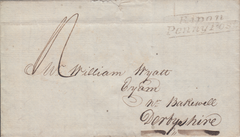 Ripon
Penny Post
Mr William Wyatt
Eyam
Nr Bakewell
Derbyshire